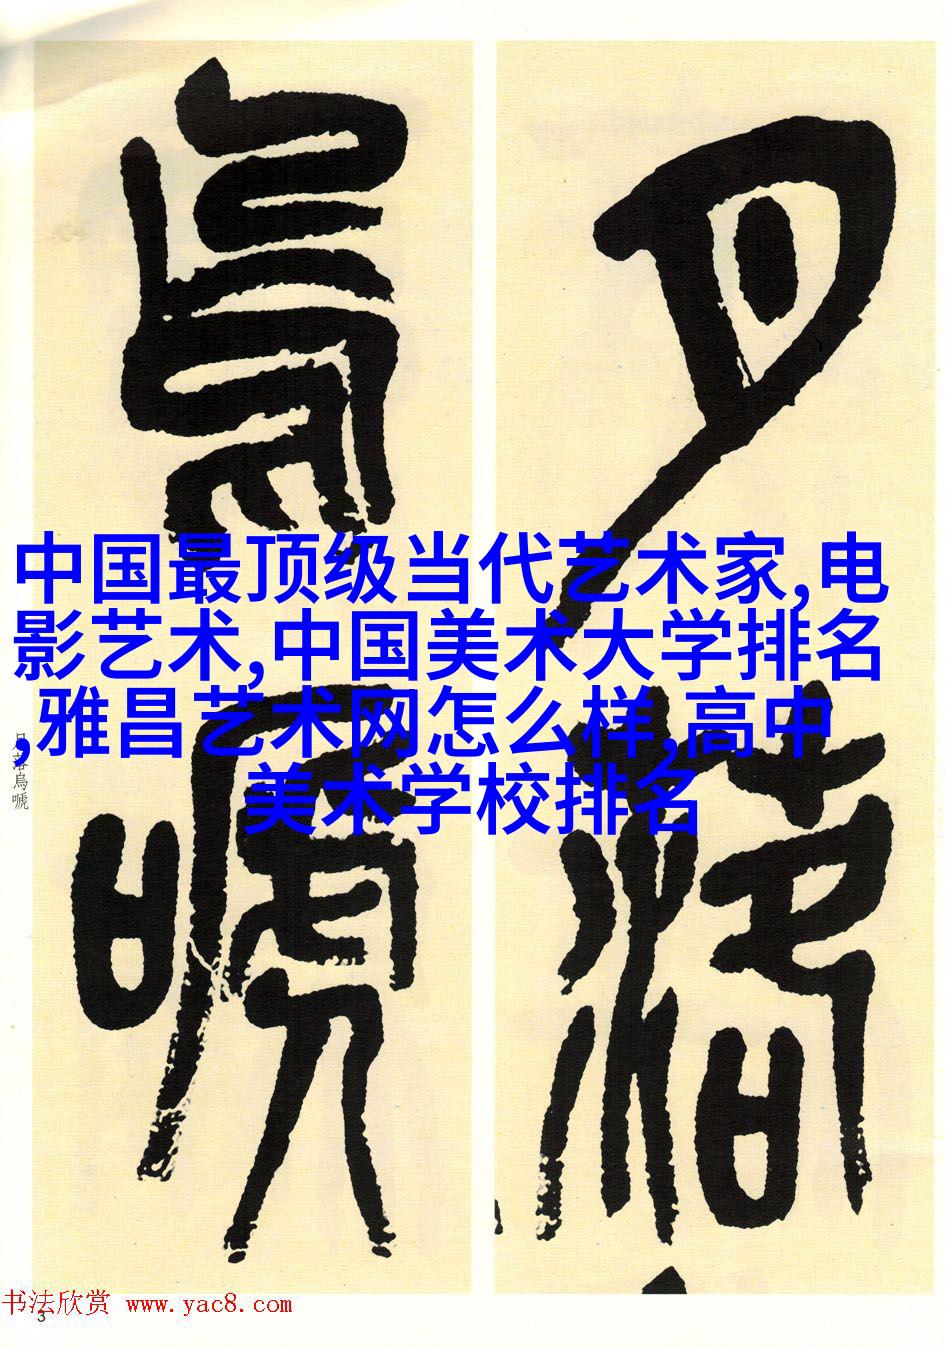 月落
烏嗁
中国最顶级当代艺术家,电
影艺术,中国美术大学排名
,雅昌艺术网怎么样,高中
美术学校排名
月落烏嗁
书法欣赏 www.yac8.com
3